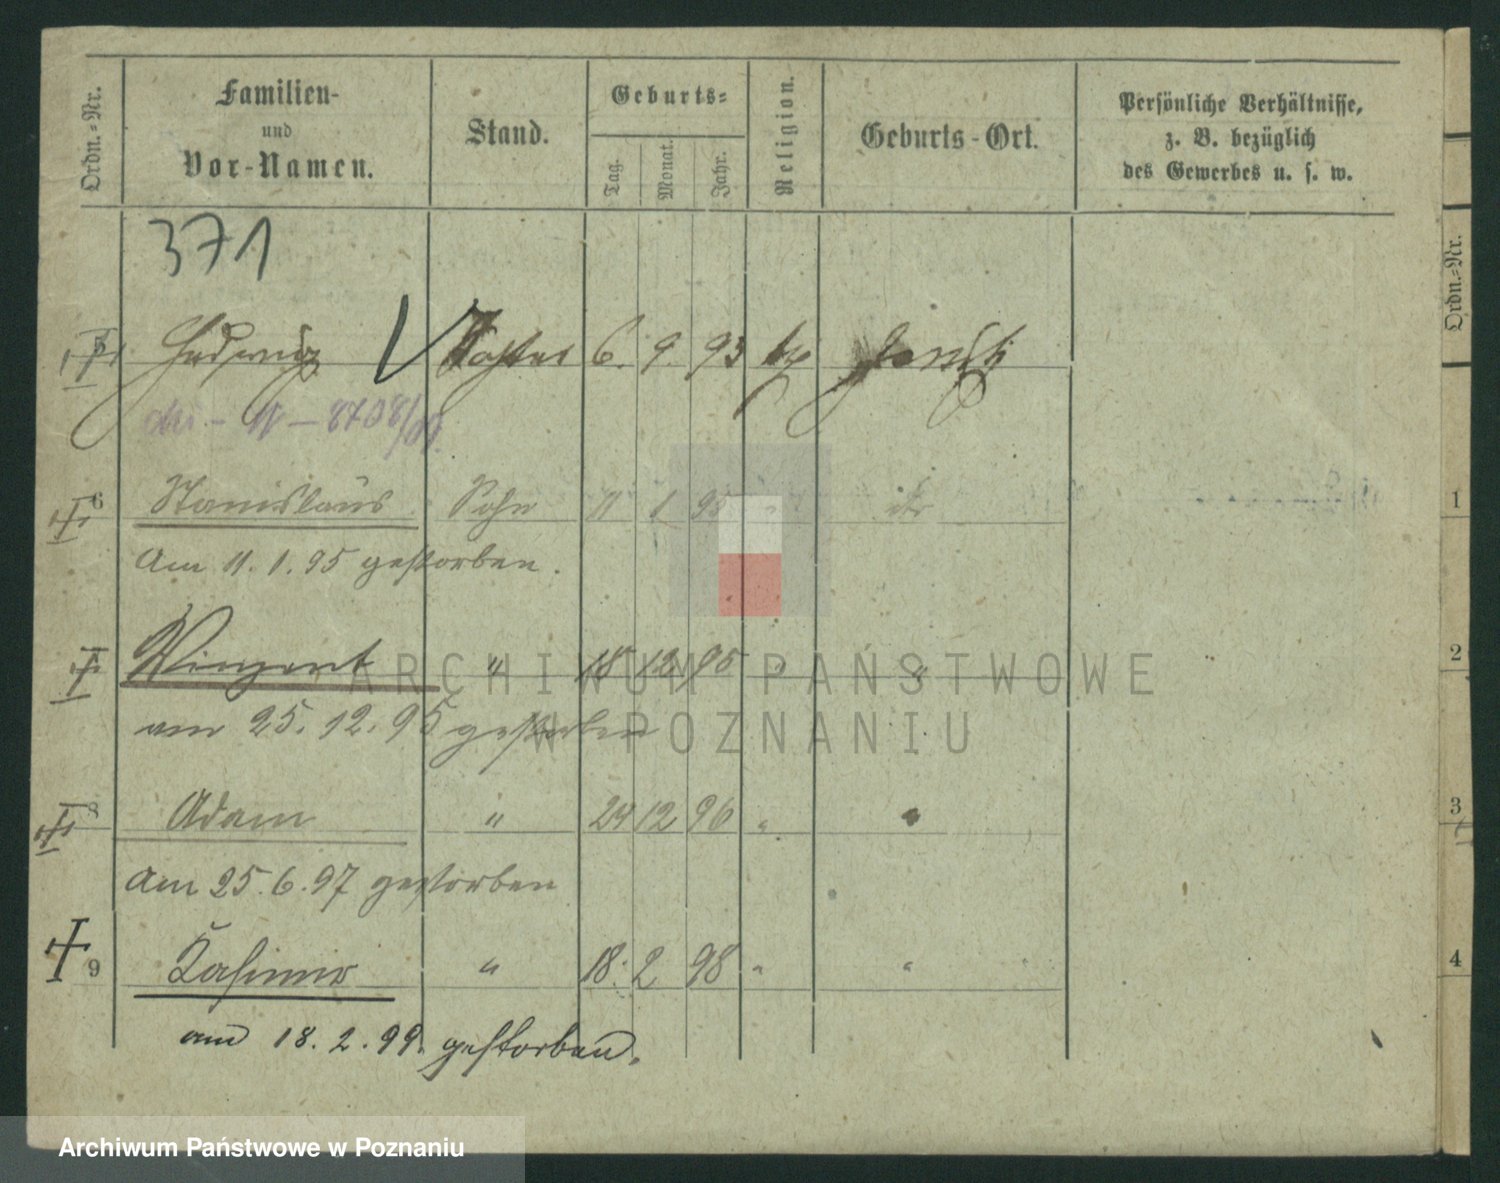 Ordn.-Nr.
Familien-
und
Vor-Namen.
Stand.
Geburts-
Tag.
Monat.
Jahr.
Religion.
Geburts-Ort.
Persönliche Verhältnisse,
z. B. bezüglich
des Gewerbes u. s. w.
371
Hedwig Tochter 6. 9. 93
6 Stanislaus Sohn 11 1 95
Am 11. 1. 95 gestorben.
Winzent " 18 12 95 " "
am 25. 12. 95 gestorben
8 Adam " 24 12 96 "
Am 25. 6. 97 gestorben
9 Kasimir " 18. 2 98 " "
am 18. 2. 99. gestorben.
Ordn.-Nr.
1
2
3
4
ARCHIWUM PAŃSTWOWE
W POZNANIU
Archiwum Państwowe w Poznaniu